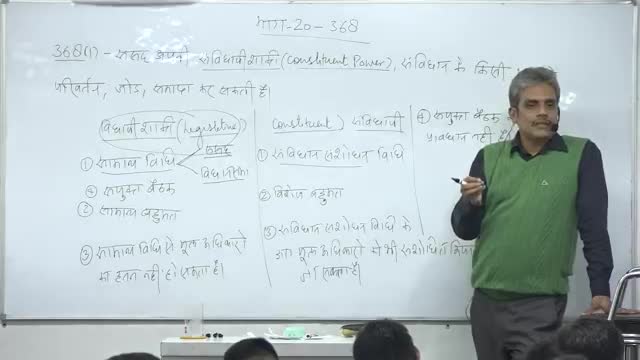 भाग-20-368
368(1) - संसद अपनी संविधायी शक्ति (Constituent Power), संविधान के किसी
परिवर्तन, जोड़, समाप्त कर सकती है।
विधायी शक्ति (Legislative)
① सामान्य विधि
संसद
विधानसभा
④ संयुक्त बैठक
② सामान्य बहुमत
③ सामान्य विधि से मूल अधिकारों
का हनन नहीं हो सकता है।
Constituent) संविधायी
① संविधान संशोधन विधि
② विशेष बहुमत
③ संविधान संशोधन विधि के
मूल अधिकारों में भी संशोधित किया
जा सकता है।
④ संयुक्त बैठक
प्रावधान नहीं है